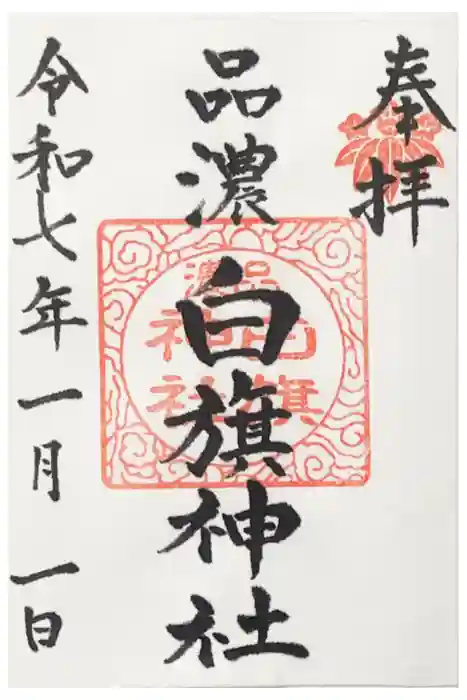 奉拝
品濃
白旗神社
品濃
白旗
神社
令和七年一月一日